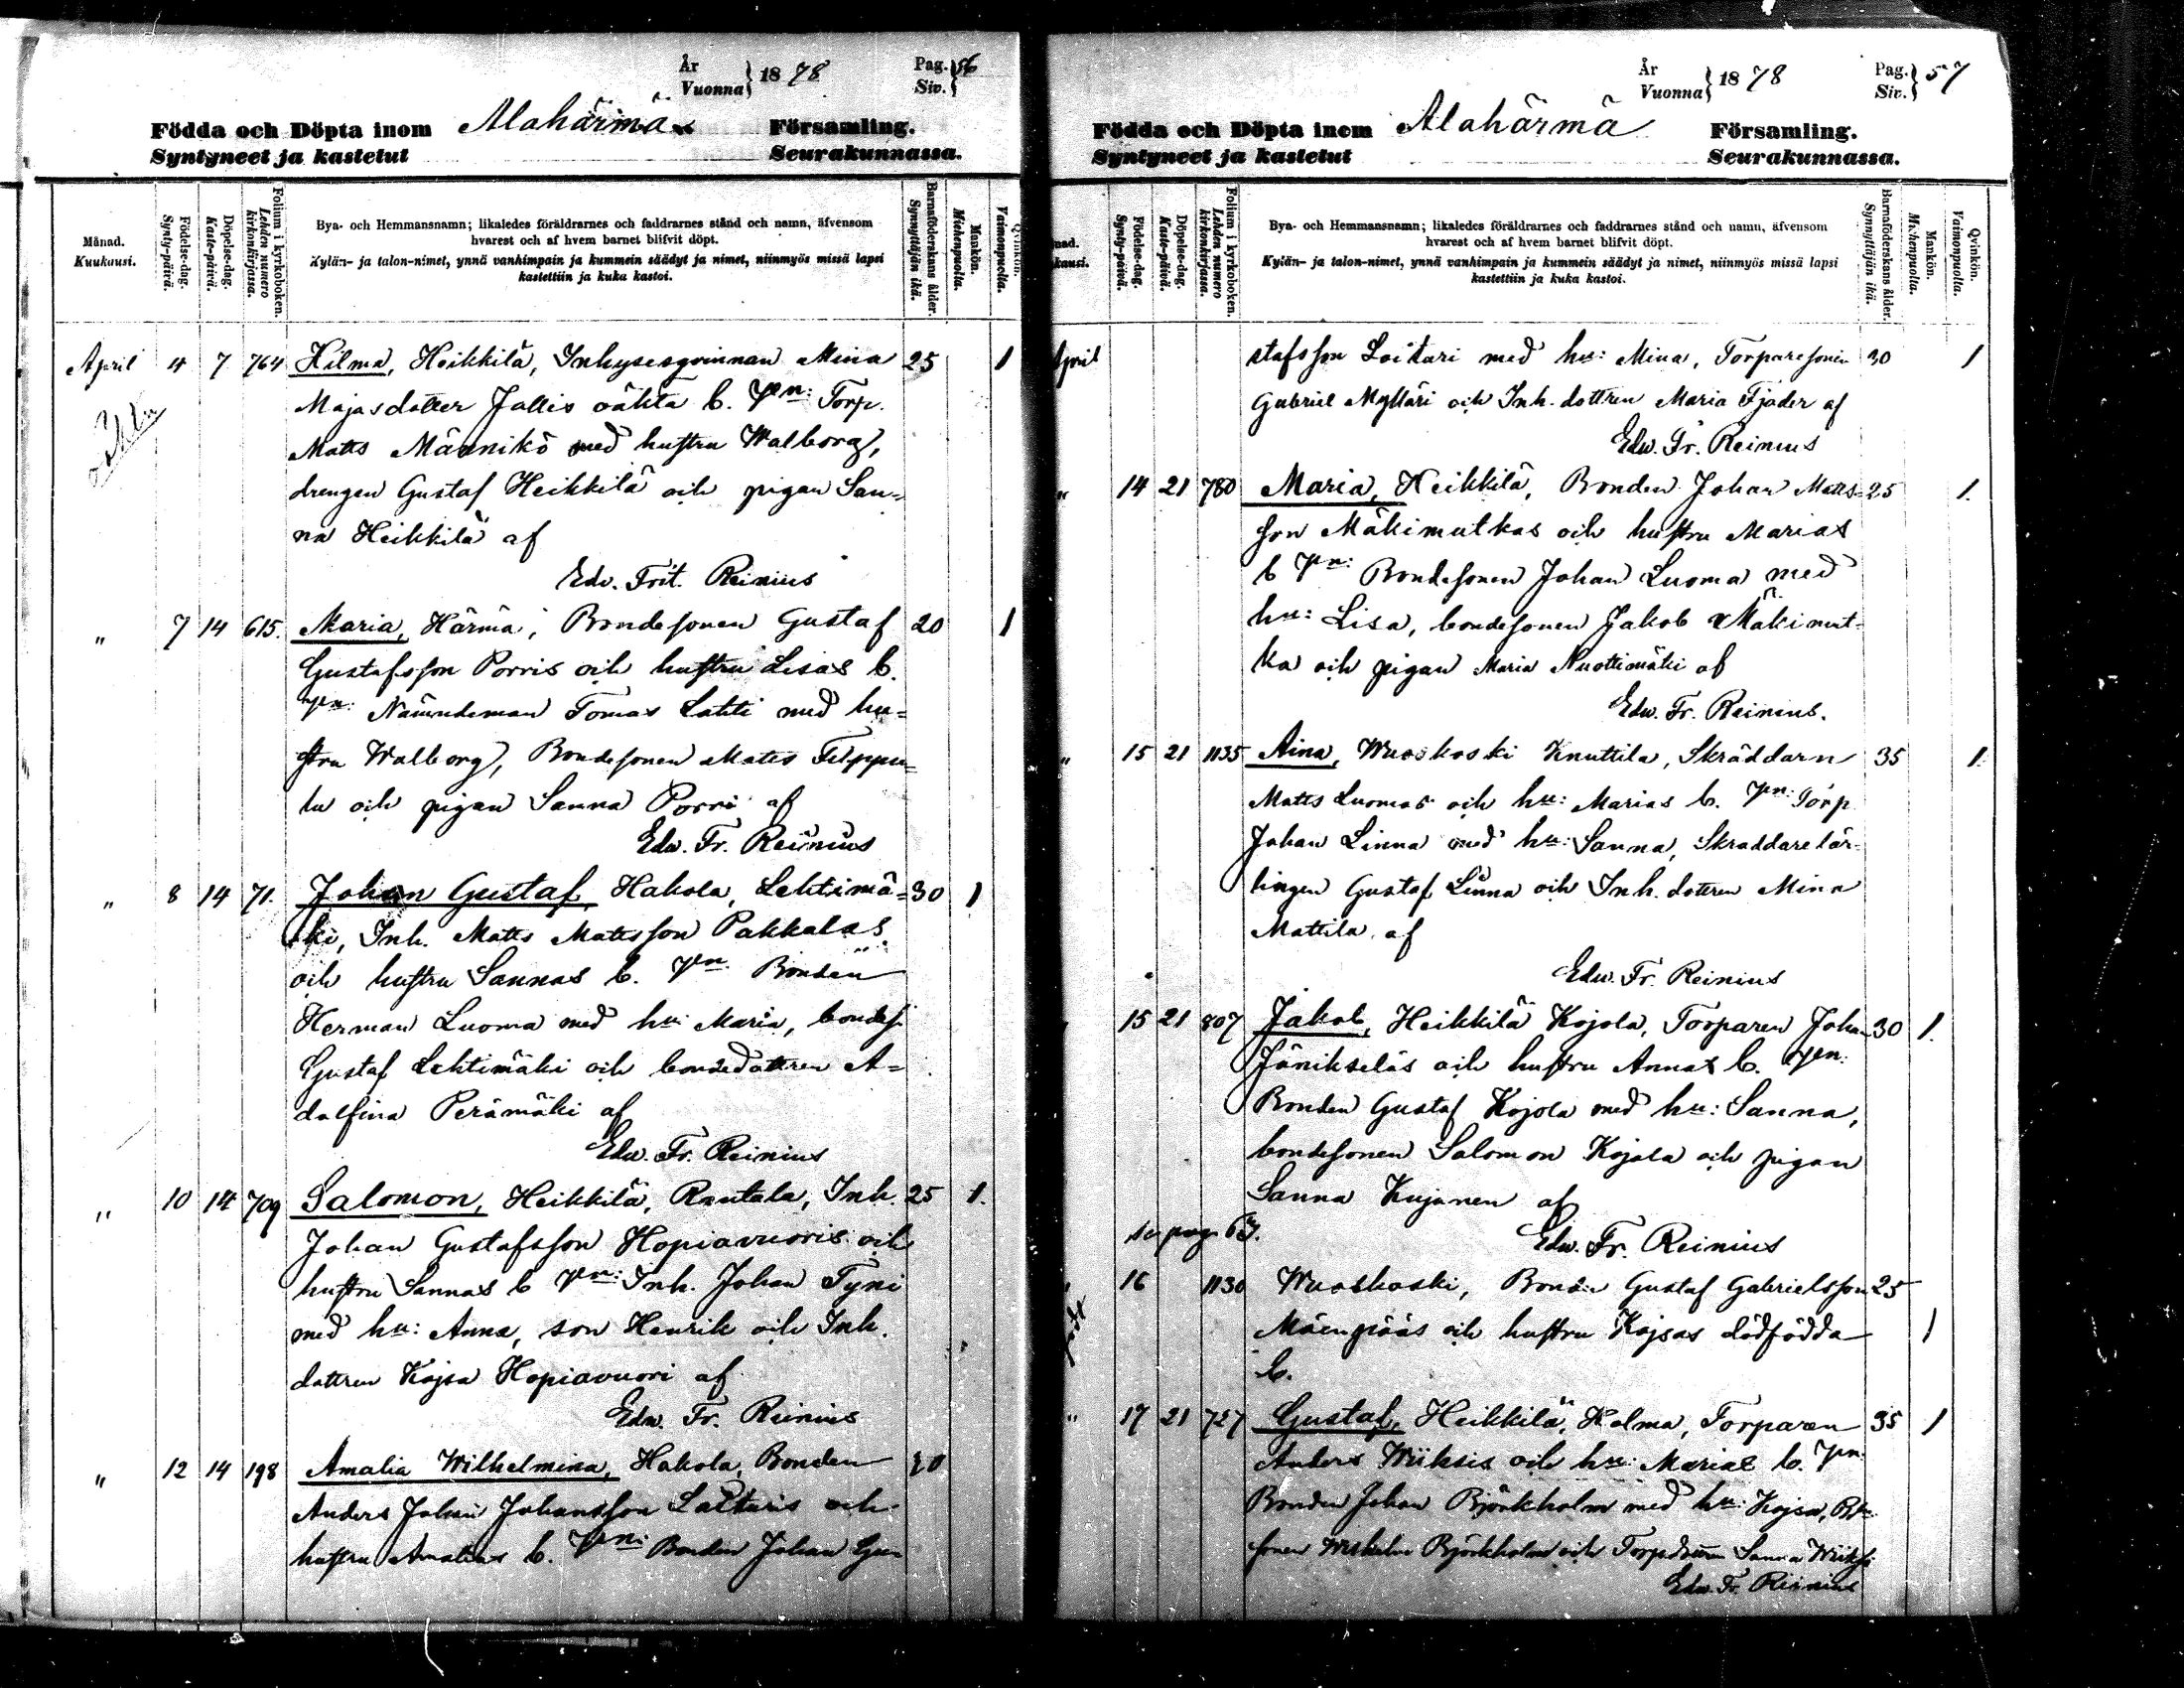 År
Vuonna } 1878
Pag.
Siv. } 56
Födda och Döpta inom Alahärmä Församling.
Syntyneet ja kastetut Seurakunnassa.
Månad.
Kuukausi.
Födelse-dag.
Synty-päivä.
Döpelse-dag.
Kaste-päivä.
Folium i kyrkoboken.
Lehden numero kirkonkirjassa.
Bya- och Hemmansnamn; likaledes föräldrarnes och faddrarnes stånd och namn, äfvensom
hvarest och af hvem barnet blifvit döpt.
Kylän- ja talon-nimet, ynnä vanhimpain ja kummein säädyt ja nimet, niinmyös missä lapsi
kastettiin ja kuka kastoi.
Barnaföderskans ålder.
Synnyttäjän ikä.
Mankön.
Miehenpuolia.
Qvinkön.
Vaimonpuolia.
April 4 7 764 Hilma, Heikkilä, Inhysesqvinnan Mina 25 1
Majasdotter Jallis oäkta b. Vn: Torp.
Matts Männikö med hustru Walborg,
drengen Gustaf Heikkilä och pigan San=
na Heikkilä af
Edv. Frit. Reinius
" 7 14 615. Maria, Härmä, Bondesonen Gustaf 20 1
Gustafsson Porris och hustru Lisas b.
Vn: Nämndeman Tomas Lahti med hu=
stru Walborg, Bondesonen Matts Filppu=
la och pigan Sanna Porri af
Edw. Fr. Reinius
" 8 14 71. Johan Gustaf, Hakola, Lehtimä= 30 1
ki, Inh. Matts Mattsson Pakkalas
och hustru Sannas b. Vn. Bonden
Herman Luoma med hu: Maria, bondes.
Gustaf Lehtimäki och bondedottren A=
dolfina Perämäki af
Edw. Fr. Reinius
" 10 14 709 Salomon, Heikkilä, Rautala, Inh. 25 1.
Johan Gustafsson Hopiavuoris och
hustru Sannas b Vn: Inh. Johan Tyni
med hu: Anna, son Henrik och Inh.
dottren Kajsa Hopiavuori af
Edw. Fr. Reinius
" 12 14 198 Amalia Wilhelmina, Hakola, Bonden
Anders Johan Johansson och
hustru Amalias b. Vn: Bonden Johan Gu=
År
Vuonna } 1878
Pag.
Siv. } 57
Födda och Döpta inom Alahärmä Församling.
Syntyneet ja kastetut Seurakunnassa.
nad.
kausi.
Födelse-dag.
Synty-päivä.
Döpelse-dag.
Kaste-päivä.
Folium i kyrkoboken.
Lehden numero kirkonkirjassa.
Bya- och Hemmansnamn; likaledes föräldrarnes och faddrarnes stånd och namn, äfvensom
hvarest och af hvem barnet blifvit döpt.
Kylän- ja talon-nimet, ynnä vanhimpain ja kummein säädyt ja nimet, niinmyös missä lapsi
kastettiin ja kuka kastoi.
Barnaföderskans ålder.
Synnyttäjän ikä.
Mankön.
Miehenpuolla.
Qvinkön.
Vaimonpuolla.
April stafsson Loitari med hu: Mina, Torparesonen 30 1
Gabriel Mylläri och Inh. dottren Maria Fjäder af
Edw. Fr. Reinius
" 14 21 780 Maria, Heikkilä, Bonden Johan Matts= 25 1.
son Mäkimutkas och hustru Marias
b Vn: Bondesonen Johan Luoma med
hu: Lisa, bondesonen Jakob Mäkimut=
ka och pigan Maria Nuottimäki af
Edw. Fr. Reinius.
" 15 21 1135 Aina, Wuoskoski Knuttila, Skräddarn 35 1.
Matts Luomas och hu: Marias b. Vn: Torp
Johan Linna med hu: Sanna, Skräddarelär=
lingen Gustaf Linna och Inh. dottren Mina
Mattila af
Edw. Fr. Reinius
15 21 807 Jakob, Heikkilä Kojola, Torparen Johan 30 1.
Jänikseläs och hustru Annas b. Vn:
Bonden Gustaf Kojola med hu: Sanna,
bondesonen Salomon Kojola och pigan
Sanna Kujanen af
se pag 63.
Edw. Fr. Reinius
16 1130 Wuoskoski, Bonden Gustaf Gabrielsson 25
Mäenpääs och hustru Kajsas dödfödda 1
b.
" 17 21 727 Gustaf, Heikkilä, Kolma, Torparen 35 1
Anders Wiiksis och hu: Marias b. Vn:
Bonden Johan Björkholm med hu: Kajsa, Bde
sonen Wilhelm Björkholm och Sanna Wiiksi
Edw. Fr. Reinius